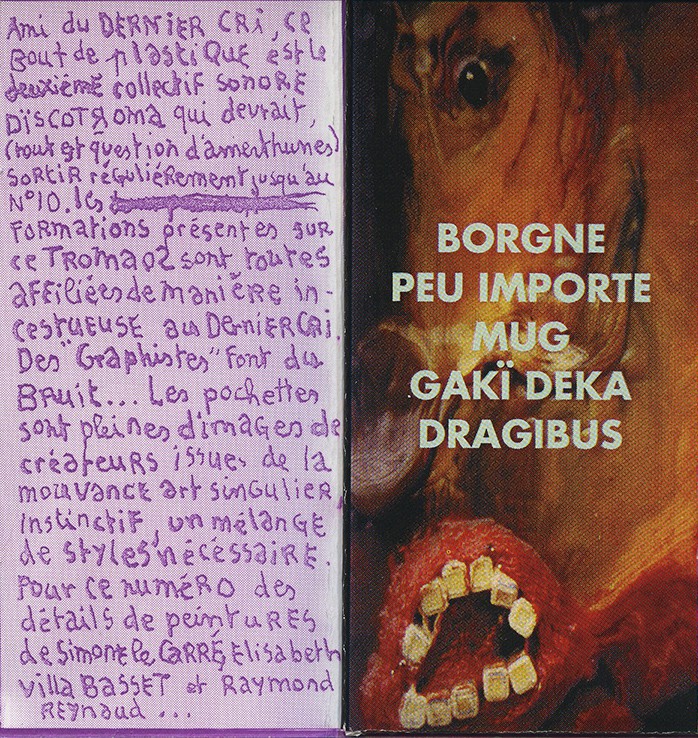 Ami du DERNIER CRI, CE
Bout de plastiQUE est le
deuxième collectif sonore
DISCOTROMA qui devrait,
(tout est question d'amerthunes)
SORTIR réguliérement jusqu'au
N°10. les
Formations présentes sur
ce TROMA02 sont toutes
AFFiliées de maniÈre in-
cestueuse au DernierCri.
Des "Graphistes" Font du
BRuit... Les pochettes
sont pleines d'images de
créateurs issues de la
mouvance art singulier,
instinctif, un mélange
de styles nécessaire.
Pour ce numéro des
détails de peintures
de Simone le CARRÉ, Elisabeth
villa BASSET et Raymond
REYnaud...
BORGNE
PEU IMPORTE
MUG
GAKÏ DEKA
DRAGIBUS